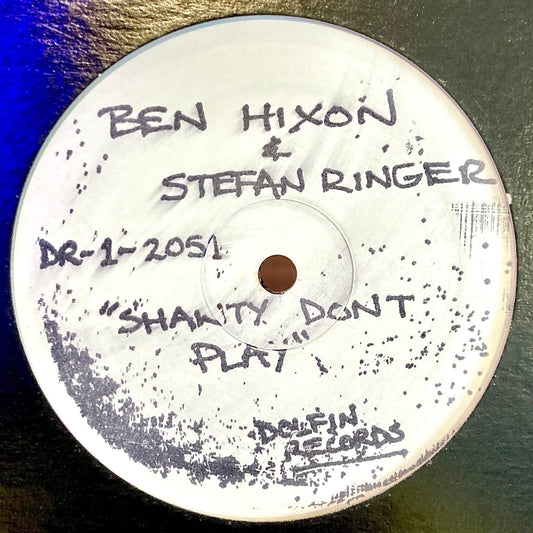 BEN HIXON
&
STEFAN RINGER
DR-1-2051
"SHAWTY DONT
PLAY"
DOLFIN
RECORDS